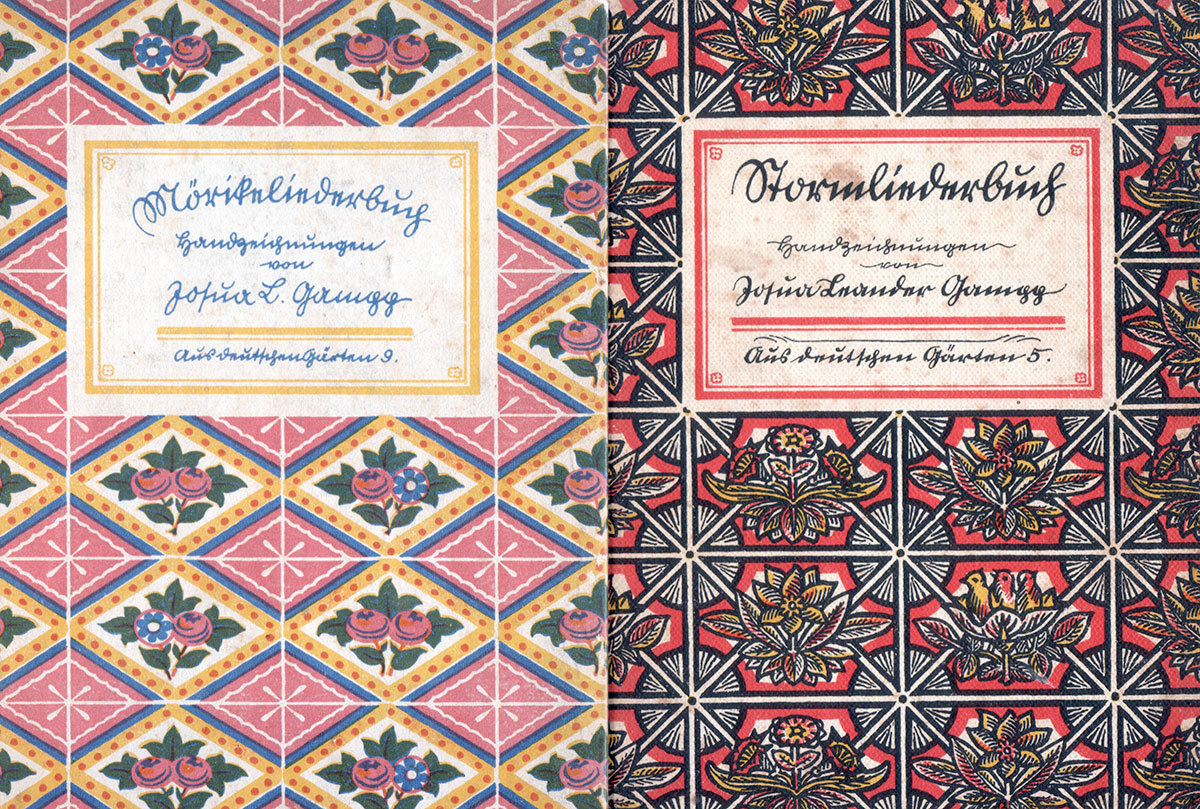 Mörikeliederbuch
Handzeichnungen
von
Josua L. Gampp
Aus deutschen Gärten 9.
Stormliederbuch
Handzeichnungen
von
Josua Leander Gampp
Aus deutschen Gärten 5.